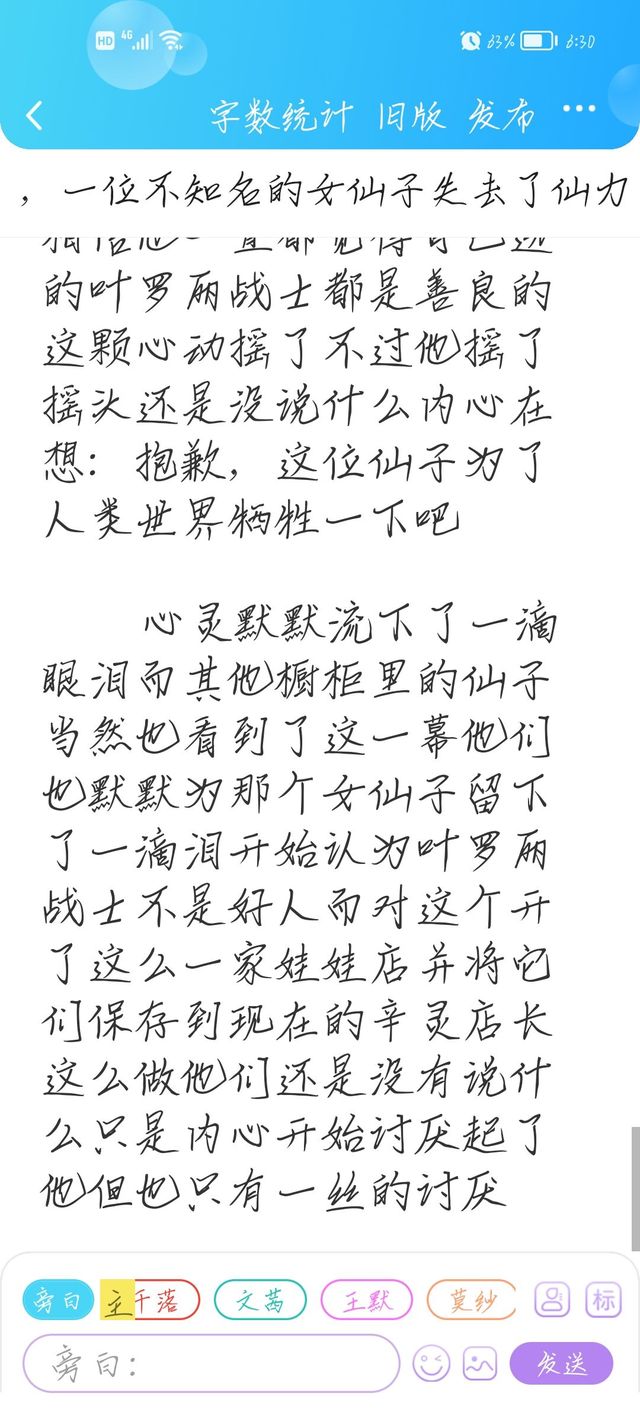 HD 4G 63% 6:30
字数统计 旧版 发布 ···
，一位不知名的女仙子失去了仙力
的叶罗丽战士都是善良的
这颗心动摇了不过他摇了
摇头还是没说什么内心在
想：抱歉，这位仙子为了
人类世界牺牲一下吧
心灵默默流下了一滴
眼泪而其他橱柜里的仙子
当然也看到了这一幕他们
也默默为那个女仙子留下
了一滴泪开始认为叶罗丽
战士不是好人而对这个开
了这么一家娃娃店并将它
们保存到现在的辛灵店长
这么做他们还是没有说什
么只是内心开始讨厌起了
他但也只有一丝的讨厌
旁白 主 千落 文茜 王默 莫纱 标
旁白： 发送